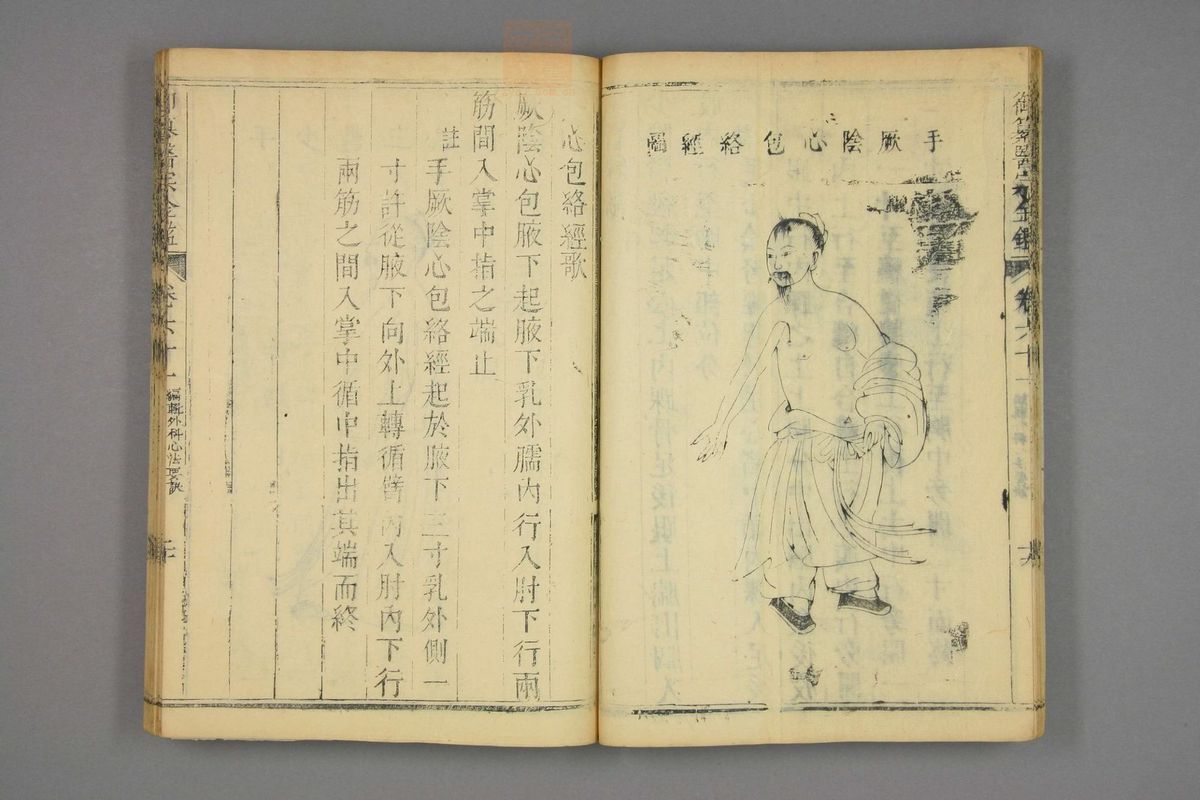 手厥陰心包絡經圖
心包絡經歌
厥陰心包腋下起腋下乳外臑內行入肘下行兩
筋間入掌中指之端止
註
手厥陰心包絡經起於腋下三寸乳外側一
寸許從腋下向外上轉循臂內入肘內下行
兩筋之間入掌中循中指出其端而終
卷六十一
編輯外科心法要訣